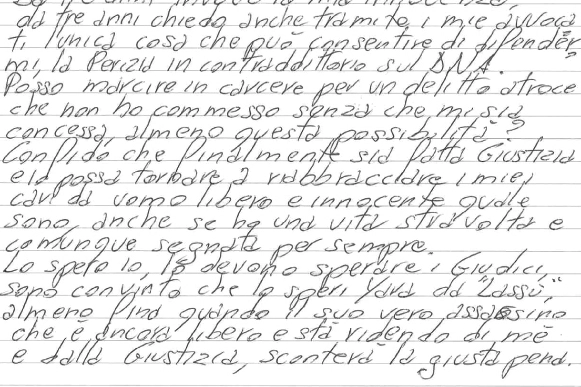 da tre anni chiedo anche tramite i mie avvoca
ti l'unica cosa che può consentire di difender
mi, la Perizia in contraddittorio sul DNA.
Posso marcire in carcere per un delitto atroce
che non ho commesso senza che mi sia
concessa, almeno questa possibilità?
Confido che finalmente sia fatta Giustizia
e io possa tornare a riabbracciare i miei
cari da uomo libero e innocente quale
sono, anche se ho una vita stravolta e
comunque segnata per sempre.
Lo spero io, lo devono sperare i Giudici,
sono convinto che lo speri Yara da "lassù",
almeno fino quando il suo vero assassino
che è ancora libero e sta ridendo di me
e della Giustizia, sconterà la giusta pena.